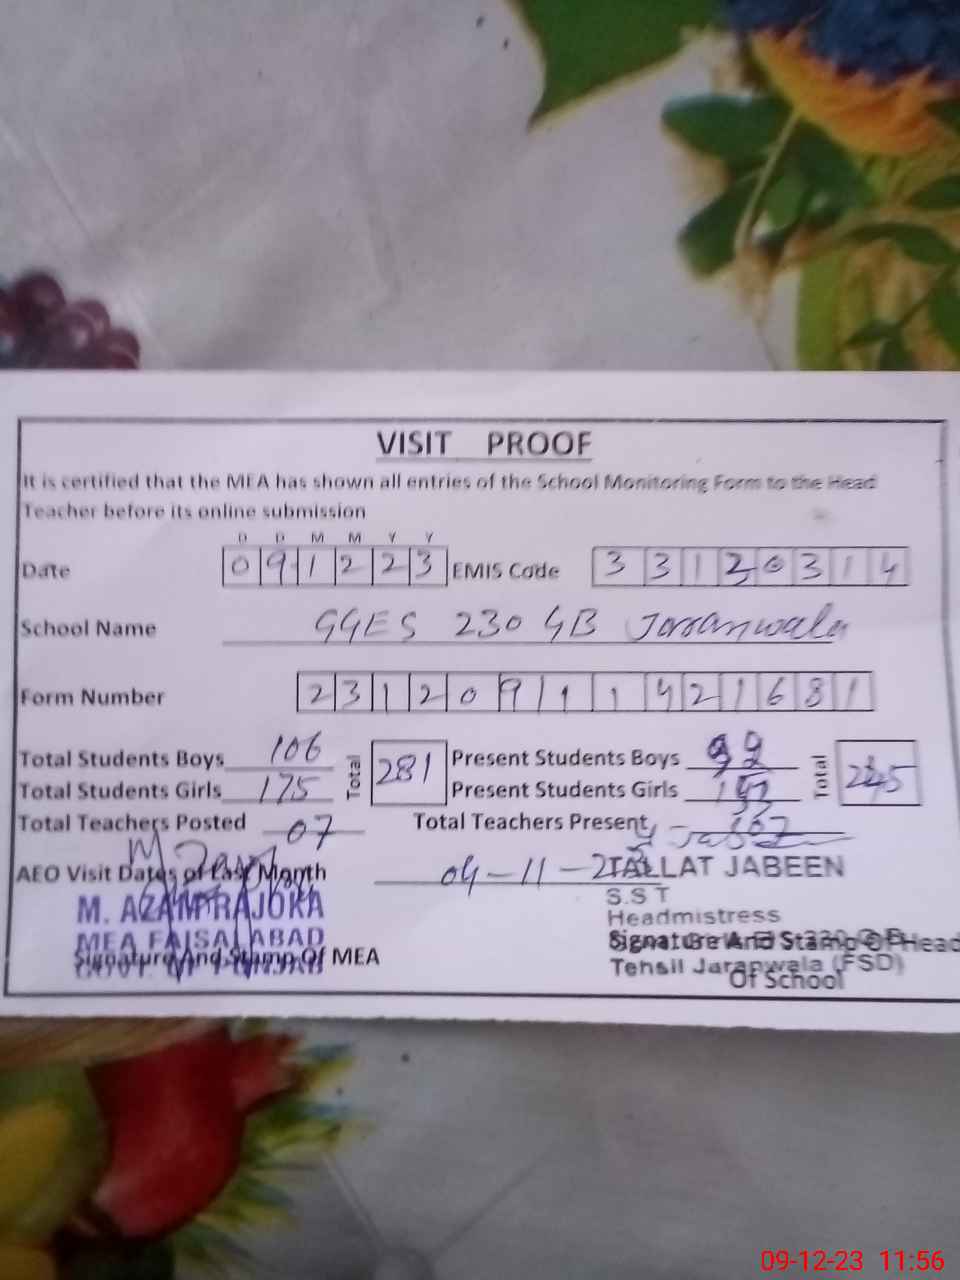 VISIT PROOF
It is certified that the MEA has shown all entries of the School Monitoring Form to the Head
Teacher before its online submission
D D M M Y Y
Date 0 9 1 2 2 3 EMIS Code 3 3 1 2 0 3 1 4
School Name GGES 230 GB Jaranwala
Form Number 2 3 1 2 0 9 1 1 1 4 2 1 6 8 1
Total Students Boys 106 Total 281 Present Students Boys Total
Total Students Girls 175 Present Students Girls
Total Teachers Posted 07 Total Teachers Present
AEO Visit Dates of Last Month 04-11-23
TALLAT JABEEN
S.S T
M. AZAM RAJOKA
Headmistress
MEA FAISALABAD
Signature And Stamp Of MEA
Signature And Stamp Of Head
Tehsil Jaranwala (FSD)
Of School
09-12-23 11:56